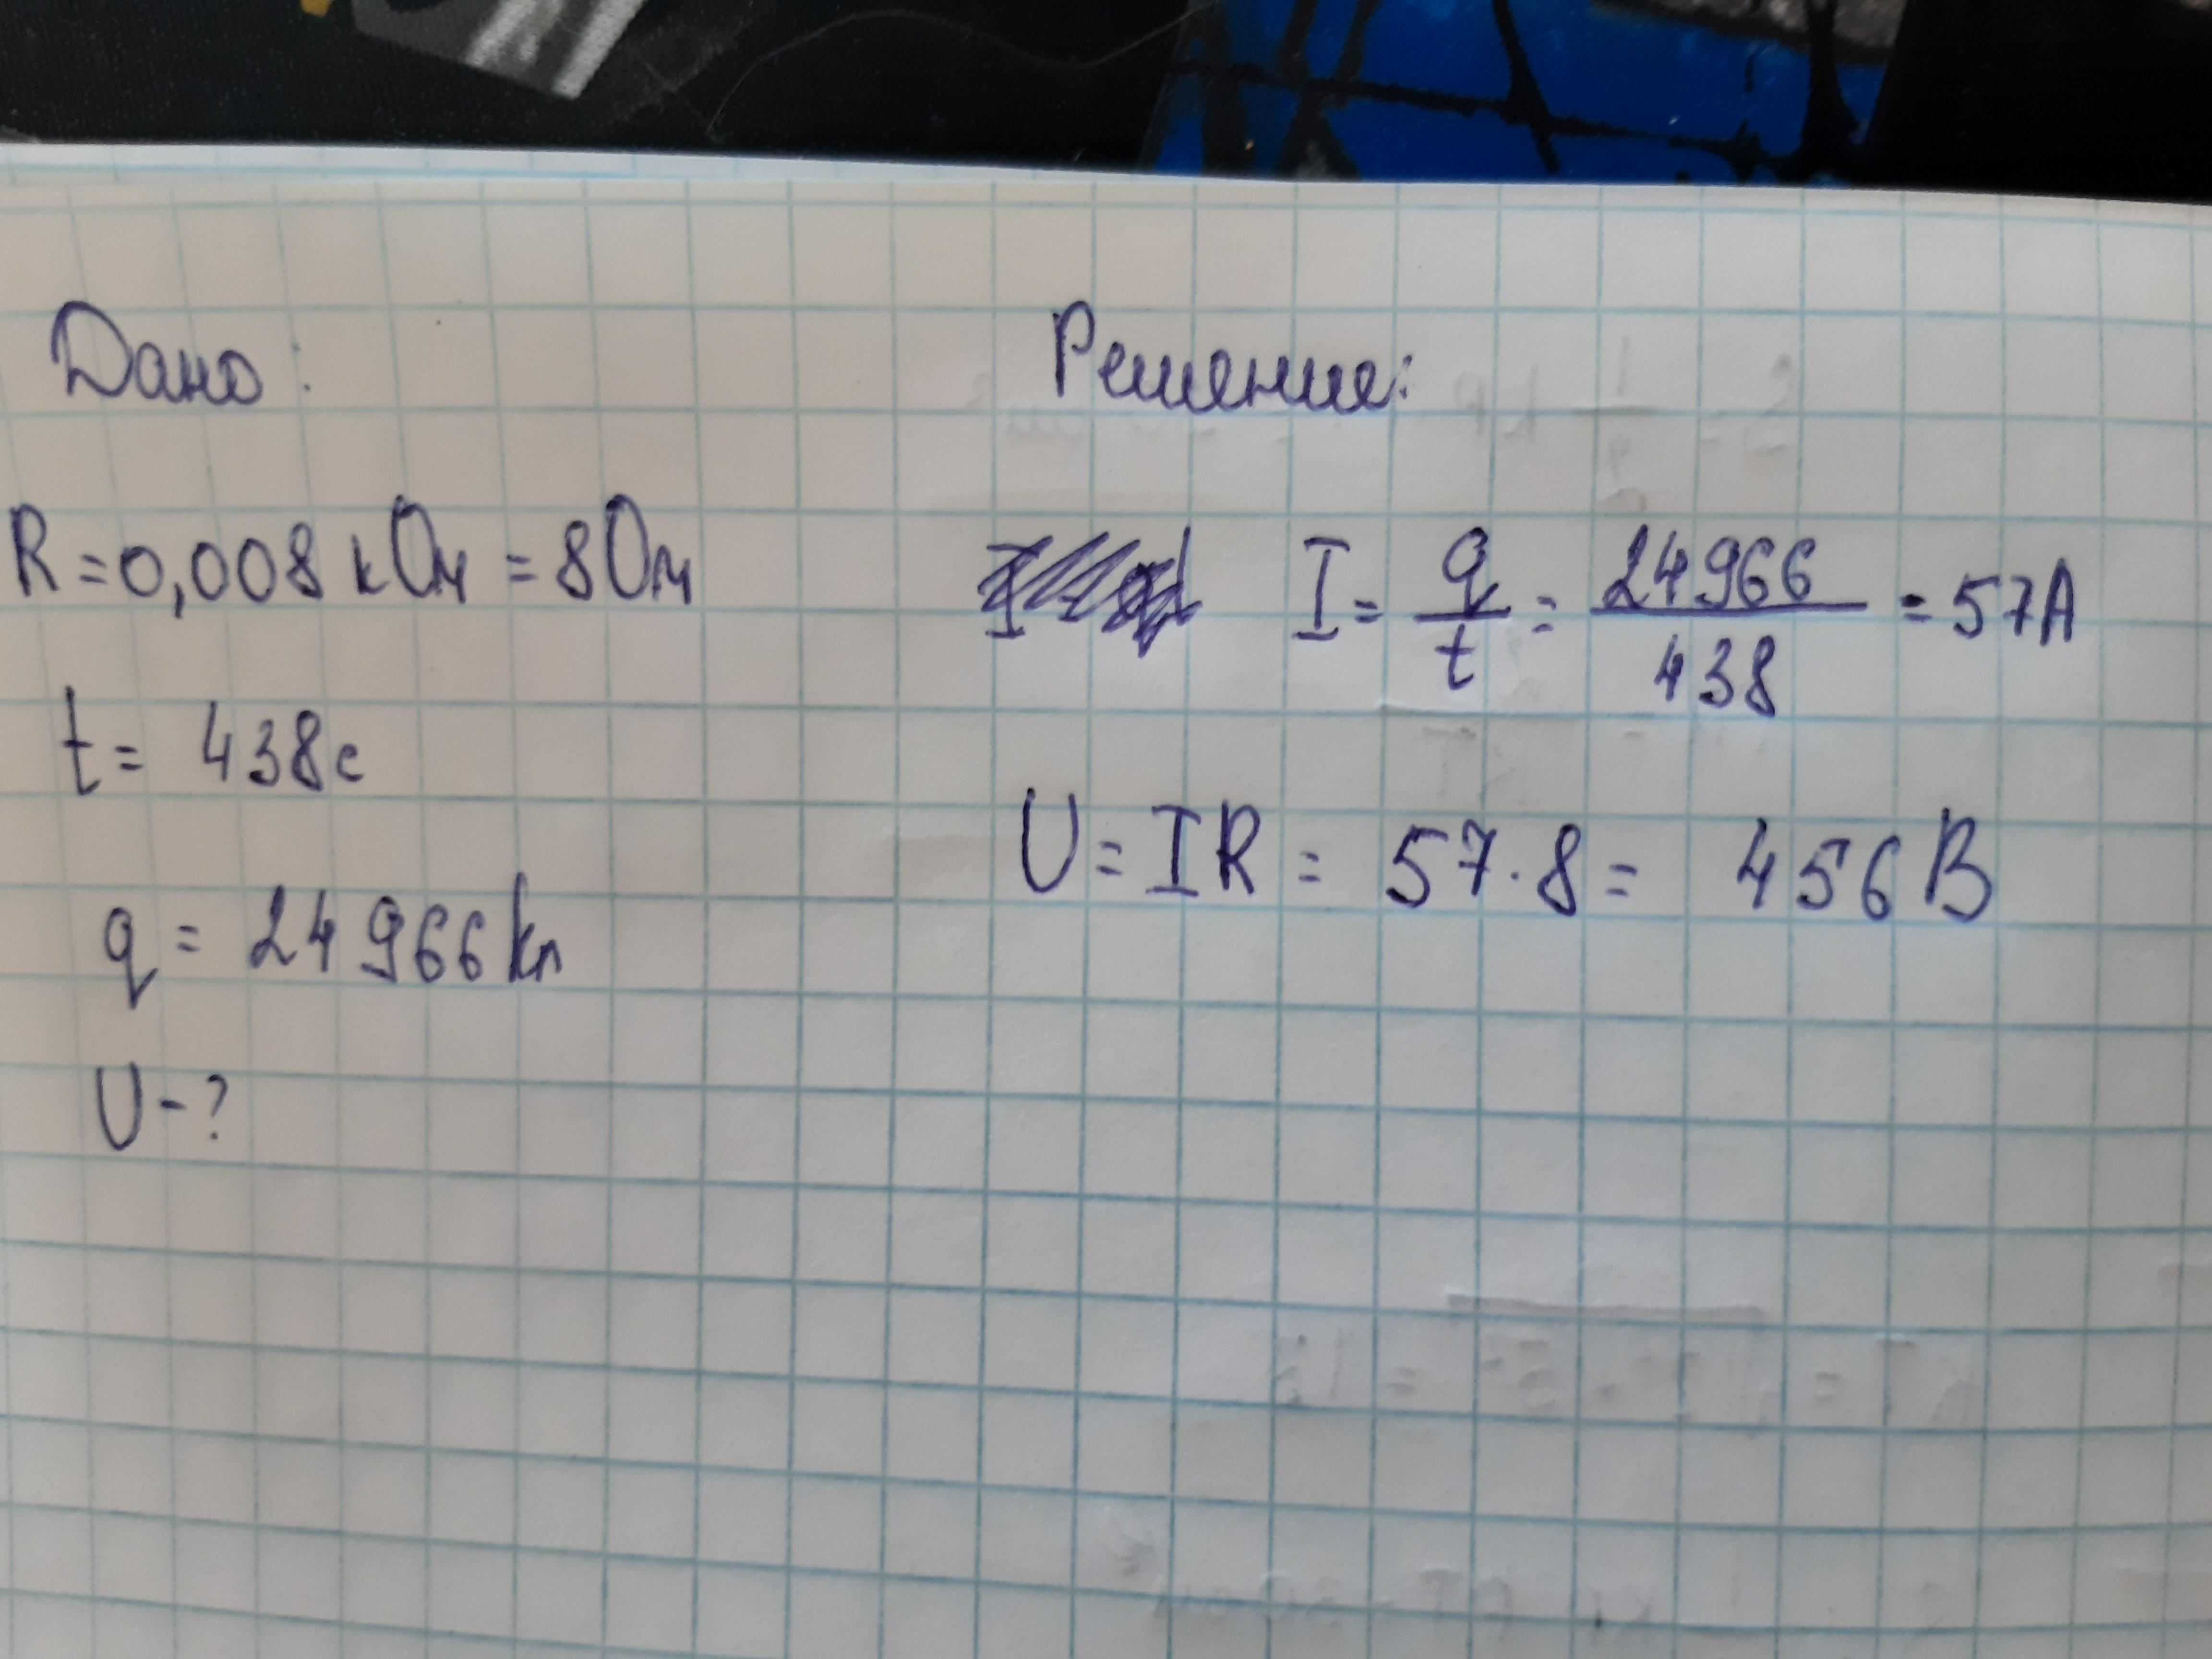 Дано:
R = 0,008 кОм = 8Ом
t = 438с
q = 24966 Кл
U - ?
Решение:
I = q/t = 24966/438 = 57А
U = IR = 57 · 8 = 456 В